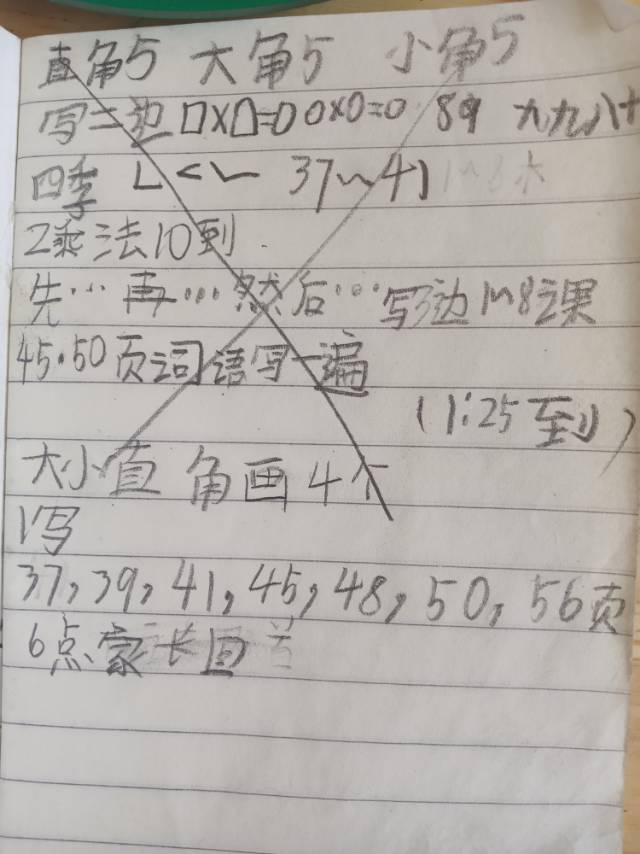 直角5 大角5 小角5
写二边 口×口=0 0×0=0 89 九九八十
四季 37~41 1~8水
2乘法10到
先…再…然后…写3边1~8课
45.50页词语写一遍
(1:25到)
大小直角画4个
1写
37,39,41,45,48,50,56页
6点家长回